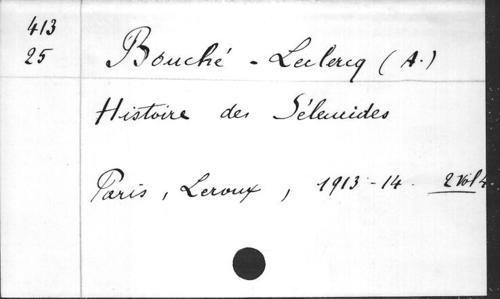 413
25
Bouché-Leclercq (A.)
Histoire des Séleucides
Paris, Leroux, 1913-14. 2 vol 4